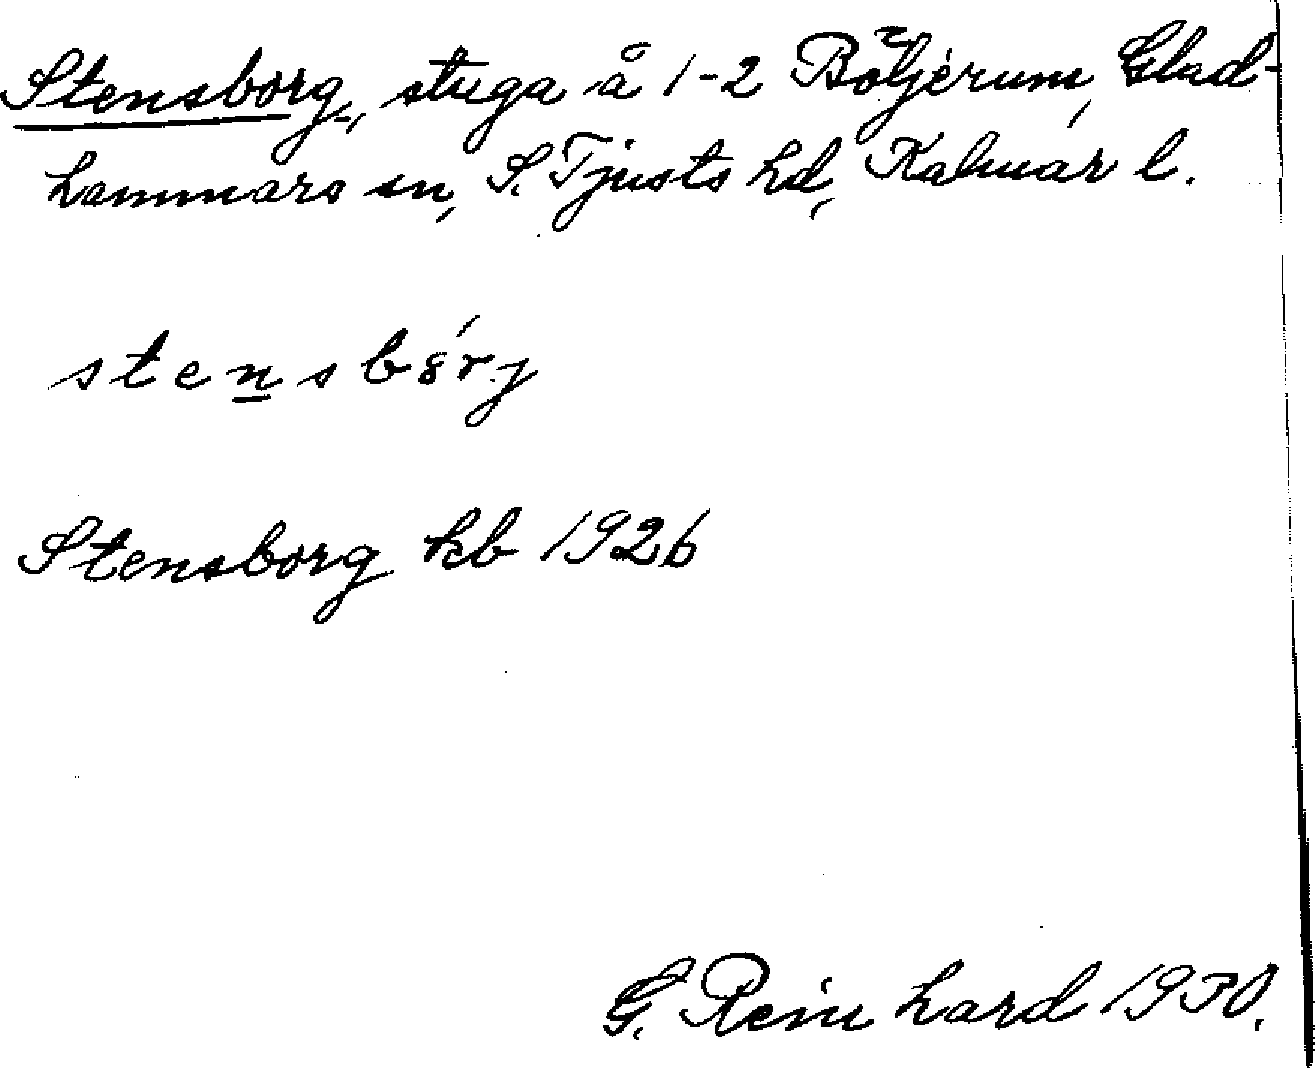 Stensborg, stuga å 1-2 Böljerum, Glad-
hammars sn, S. Tjusts hd, Kalmar l.
stensbórj
Stensborg kb 1926
G. Reinhard 1930.